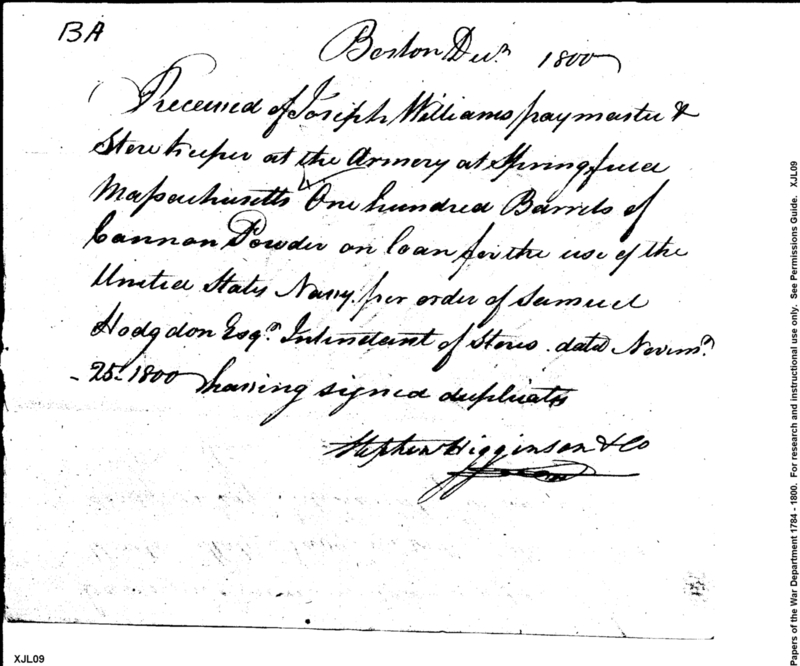 BA
Boston Decr. 1800
Received of Joseph Williams paymaster &
Store keeper at the Armory at Springfield
Massachusetts One hundred Barrels of
Cannon Powder on loan for the use of the
United States Navy. per order of Samuel
Hodgdon Esqr. Intendant of Stores. dated Novemr.
25. 1800 having signed duplicates
Stephen Higginson & Co
XJL09
Papers of the War Department 1784 - 1800. For research and instructional use only. See Permissions Guide. XJL09